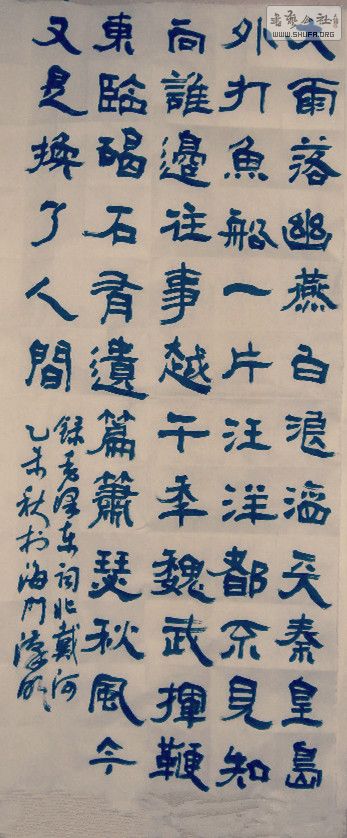 書藝公社
WWW.SHUFA.ORG
大雨落幽燕白浪滔天秦皇島
外打魚船一片汪洋都不見知
向誰邊往事越千年魏武揮鞭
東臨碣石有遺篇簫瑟秋風今
又是換了人間
錄毛澤東詞北戴河
乙未秋於海門